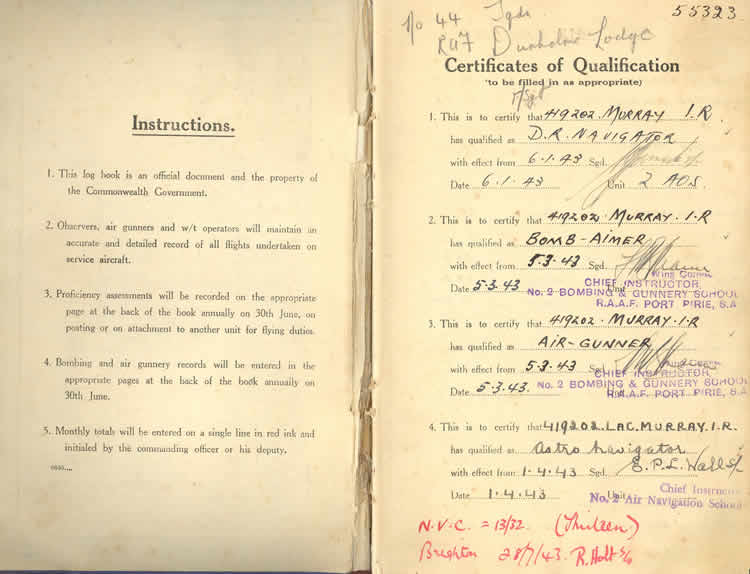 Instructions.
1. This log book is an official document and the property of
the Commonwealth Government.
2. Observers, air gunners and w/t operators will maintain an
accurate and detailed record of all flights undertaken on
service aircraft.
3. Proficiency assessments will be recorded on the appropriate
page at the back of the book annually on 30th June, on
posting or on attachment to another unit for flying duties.
4. Bombing and air gunnery records will be entered in the
appropriate pages at the back of the book annually on
30th June.
5. Monthly totals will be entered on a single line in red ink and
initialed by the commanding officer or his deputy.
55323
No 44 Sqdn
RAF Dunholme Lodge
Certificates of Qualification
(to be filled in as appropriate)
F/Sgt
1. This is to certify that 419202. MURRAY I.R
has qualified as D.R. NAVIGATOR
with effect from 6.1.43 Sgd.
Date 6.1.43 Unit 2 AOS.
2. This is to certify that 419202. MURRAY. I.R
has qualified as BOMB-AIMER
with effect from 5.3.43 Sgd.
Wing Comm
Date 5.3.43 Unit
CHIEF INSTRUCTOR,
No. 2 BOMBING & GUNNERY SCHOOL
R.A.A.F. PORT PIRIE, S.A
3. This is to certify that 419202. MURRAY. I.R
has qualified as AIR-GUNNER
with effect from 5.3.43 Sgd.
Wing Comm
CHIEF INSTRUCTOR,
Date 5.3.43. Unit
No. 2 BOMBING & GUNNERY SCHOOL
R.A.A.F. PORT PIRIE, S.A
4. This is to certify that 419202. LAC. MURRAY. I.R.
has qualified as Astro Navigator
with effect from 1.4.43 Sgd. E.P.L. Wall S/L
Date 1.4.43 Unit
Chief Instructor
No. 2 Air Navigation School
N.V.C. = 13/32. (Thirteen)
Brighton 28/7/43. R. Holt